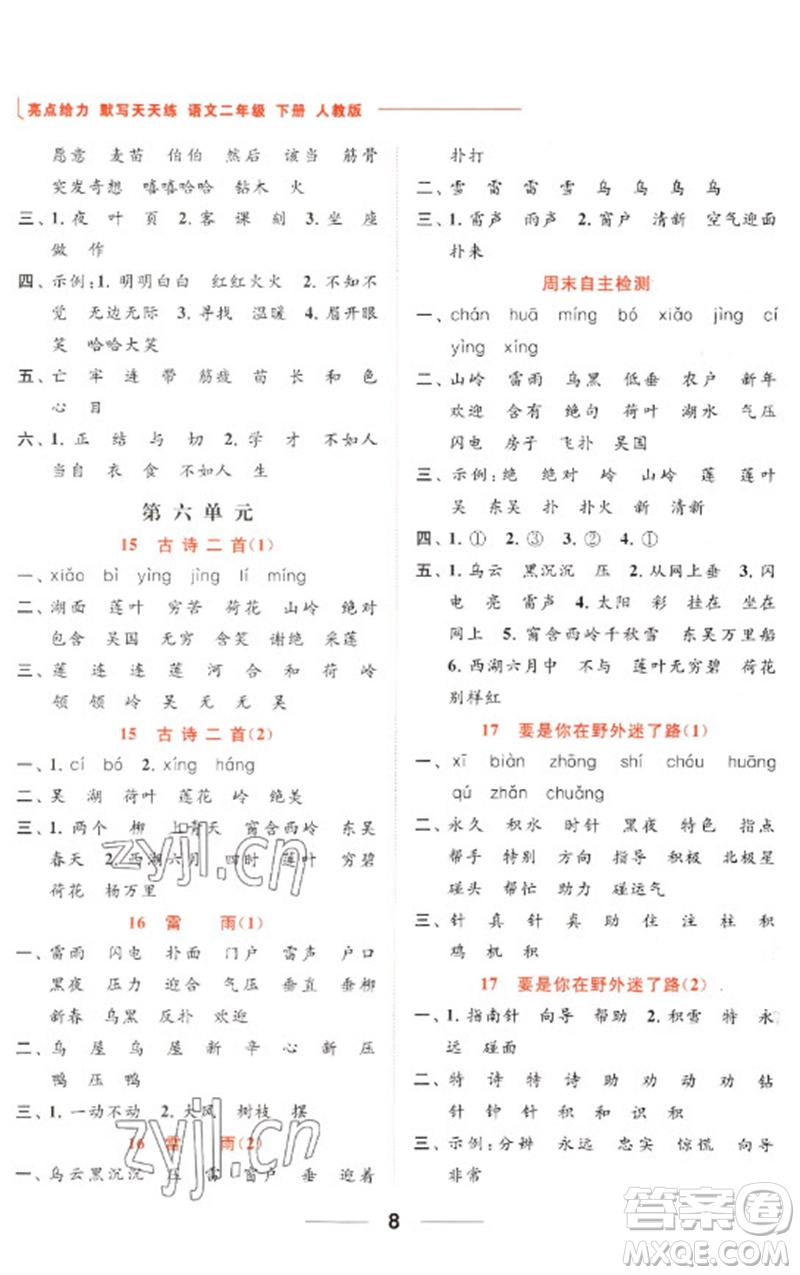 亮点给力 默写天天练 语文二年级 下册 人教版
愿意 麦苗 伯伯 然后 该当 筋骨
突发奇想 嘻嘻哈哈 钻木 火
三、1. 夜 叶 页 2. 客 课 刻 3. 坐 座
做 作
四、示例:1. 明明白白 红红火火 2. 不知不
觉 无边无际 3. 寻找 温暖 4. 眉开眼
笑 哈哈大笑
五、亡 牢 连 带 筋疲 苗 长 和 色
心 目
六、1. 正 结 与 切 2. 学 才 不如人
当自 衣 食 不如人 生
第六单元
15 古诗二首(1)
一、xiǎo bì yìng jìng lí míng
二、湖面 莲叶 穷苦 荷花 山岭 绝对
包含 吴国 无穷 含笑 谢绝 采莲
三、莲 连 连 莲 河 合 和 荷 岭
领 领 岭 吴 无 无 吴
15 古诗二首(2)
一、1. cí bó 2. xíng háng
二、吴 湖 荷叶 莲花 岭 绝美
三、1. 两个 柳 上青天 窗含西岭 东吴
春天 2. 西湖六月 四时 莲叶 穷碧
荷花 杨万里
16 雷 雨(1)
一、雷雨 闪电 扑面 门户 雷声 户口
黑夜 压力 迎合 气压 垂直 房屋
新春 乌黑 反扑 欢迎
二、乌 屋 乌 屋 新 辛 心 新 压
鸭 压 鸭
三、1. 一动不动 2. 大风 树枝 摆
16 雷 雨(2)
一、乌云黑沉沉 压 雷 窗户 垂 迎着
扑打
二、雪 雷 雷 雪 乌 鸟 鸟 乌
三、1. 雷声 雨声 2. 窗户 清新 空气迎面
扑来
周末自主检测
一、chán huā míng bó xiǎo jìng cí
yìng xíng
二、山岭 雷雨 乌黑 低垂 农户 新年
欢迎 含有 绝句 荷叶 湖水 气压
闪电 房子 飞扑 吴国
三、示例:绝 绝对 岭 山岭 莲 莲叶
吴 东吴 扑 扑火 新 清新
四、1. ① 2. ② 3. ② 4. ①
五、1. 乌云 黑沉沉 压 2. 从网上垂 3. 闪
电 亮 雷声 4. 太阳 彩 挂在 坐在
网上 5. 窗含西岭千秋雪 东吴万里船
6. 西湖六月中 不与 莲叶无穷碧 荷花
别样红
17 要是你在野外迷了路(1)
一、xī biàn zhōng shí cháu huāng
qú zhǎn chuǎng
二、永久 积水 时针 黑夜 特色 指点
帮手 特别 方向 指导 积极 北极星
碰头 帮忙 助力 碰运气
三、针 真 真 针 真 助 住 注 柱 积
鸡 机 积
17 要是你在野外迷了路(2)
一、1. 指南针 向导 帮助 2. 积雪 特 永
远 碰面
二、特 诗 诗 特 诗 助 劝 动 劝 钻
针 钟 针 积 和 识 积
三、示例:分辨 永远 忠实 惊慌 向导
非常
8
zyjl.cn
zyjl.cn
答案卷
MXQE.COM